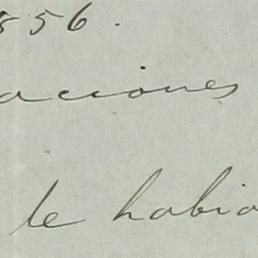 856.
aciones
le habia